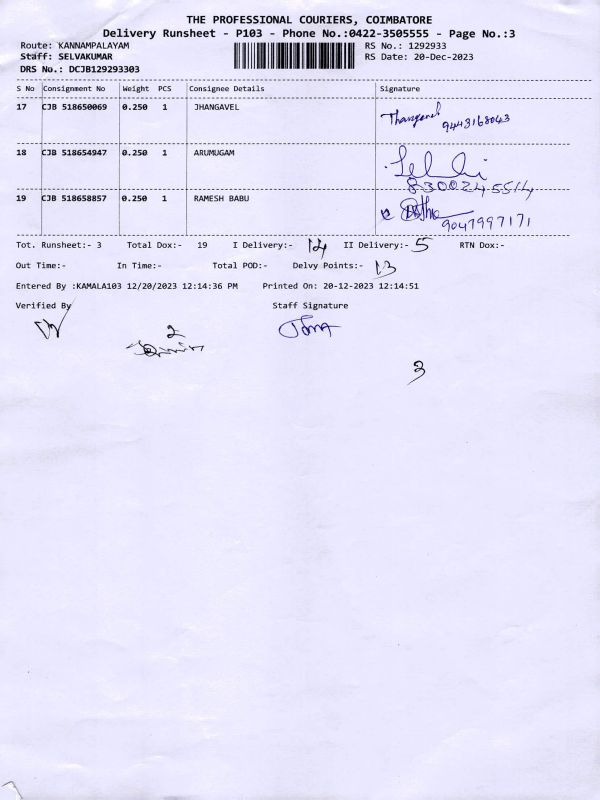 THE PROFESSIONAL COURIERS, COIMBATORE
Delivery Runsheet - P103 - Phone No.:0422-3505555 - Page No.:3
Route: KANNAMPALAYAM RS No.: 1292933
Staff: SELVAKUMAR RS Date: 20-Dec-2023
DRS No.: DCJB129293303
S No Consignment No Weight PCS Consignee Details Signature
17 CJB 518650069 0.250 1 JHANGAVEL
Thangavel 9443168043
18 CJB 518654947 0.250 1 ARUMUGAM
8300245514
19 CJB 518658857 0.250 1 RAMESH BABU
9047997171
Tot. Runsheet:- 3 Total Dox:- 19 I Delivery:- 14 II Delivery:- 5 RTN Dox:-
Out Time:- In Time:- Total POD:- Delvy Points:- 13
Entered By :KAMALA103 12/20/2023 12:14:36 PM Printed On: 20-12-2023 12:14:51
Verified By Staff Signature
2
3